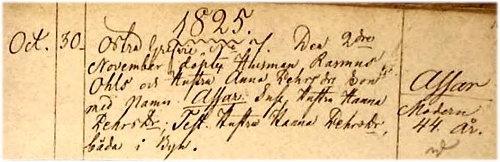 1825.
Oct. 30. Östra Grefvie No 7. Den 2dra
November döptes Husman Rasmus
Ohls och Hustru Anna Pehrsdr Son
med Namn Assar. Susc. Hustru Hanna
Pehrsdr; Test. Hustru Hanna Pehrsdr,
båda i Byn.
Assar
Modern
44 år.